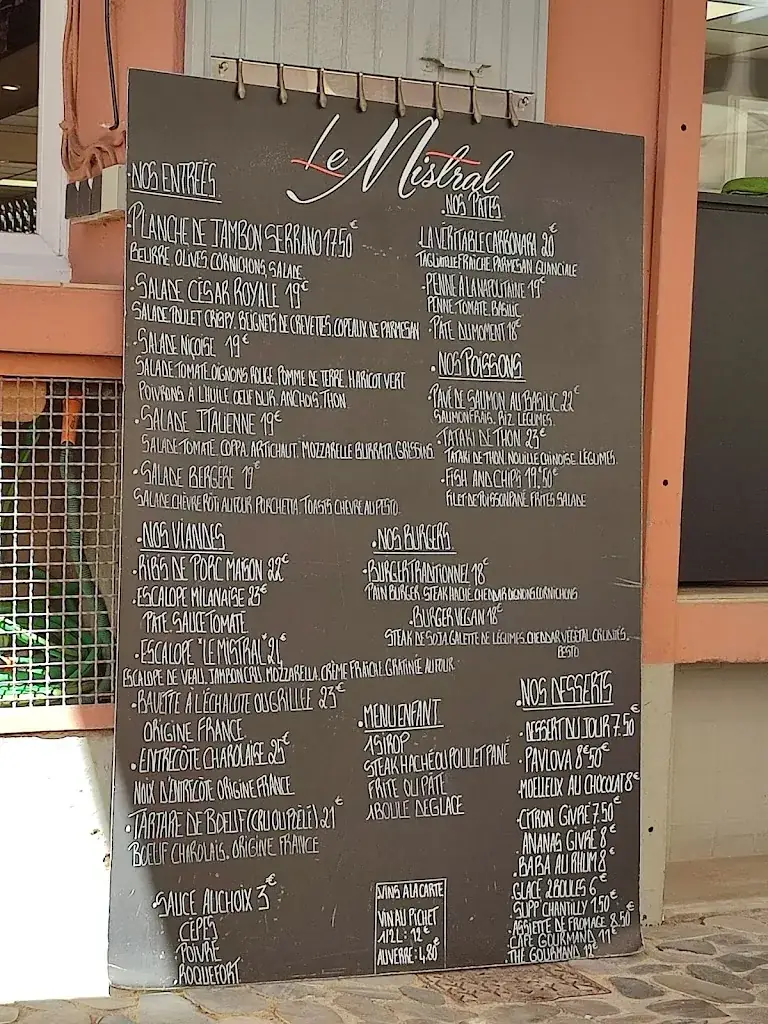 Le Mistral
NOS ENTREÉS
PLANCHE DE JAMBON SERRANO 17.50€
BEURRE, OLIVES, CORNICHONS, SALADE
SALADE CÉSAR ROYALE 19€
SALADE POULET CRISPY, BEIGNETS DE CREVETTES, COPEAUX DE PARMESAN
SALADE NIÇOISE 19€
SALADE TOMATE, OIGNONS ROUGE, POMME DE TERRE, HARICOT VERT
POIVRONS À L'HUILE ŒUF DUR, ANCHOIS, THON
SALADE ITALIENNE 19€
SALADE TOMATE, COPPA, ARTICHAUT, MOZZARELLE BURRATA, GRISSINS
SALADE BERGÈRE 19€
SALADE, CHÈVRE RÔTI AU FOUR PORCHETTA, TOASTS CHÈVRE AU PESTO
NOS PÂTES
LA VÉRITABLE CARBONARA 20€
TAGLIATELLE FRAÎCHE, PARMESAN, GUANCIALE
PENNE À LA NAPOLITAINE 19€
PENNE, TOMATE, BASILIC
PÂTE DU MOMENT 18€
NOS POISSONS
PAVÉ DE SAUMON AU BASILIC 22€
SAUMON FRAIS, RIZ, LÉGUMES
TATAKI DE THON 23€
TATAKI DE THON, NOUILLE CHINOISE, LÉGUMES
FISH AND CHIPS 19.50€
FILET DE POISSON PANÉ, FRITES, SALADE
NOS VIANDES
RIBS DE PORC MAISON 22€
ESCALOPE MILANAISE 23€
PÂTE, SAUCE TOMATE
ESCALOPE "LE MISTRAL" 24€
ESCALOPE DE VEAU, JAMBON CRU, MOZZARELLA, CRÈME FRAICHE, GRATINÉE AU FOUR
BAVETTE À L'ÉCHALOTE OU GRILLÉE 23€
ORIGINE FRANCE
ENTRECÔTE CHAROLAISE 25€
NOIX D'ENTRECÔTE ORIGINE FRANCE
TARTARE DE BOEUF (CRU OU POÊLÉ) 21€
BOEUF CHAROLAIS, ORIGINE FRANCE
SAUCE AU CHOIX 3€
CÈPES
POIVRE
ROQUEFORT
NOS BURGERS
BURGER TRADITIONNEL 18€
PAIN BURGER, STEAK HACHÉ, CHEDDAR OIGNONS, CORNICHONS
BURGER VEGAN 18€
STEAK DE SOJA, GALETTE DE LÉGUMES, CHEDDAR VÉGÉTAL, CRUDITÉS,
PESTO
MENU ENFANT
1 SIROP
STEAK HACHÉ OU POULET PANÉ
FRITE OU PÂTE
1 BOULE DE GLACE
VINS A LA CARTE
VIN AU PICHET
1/2 L : 12€
AU VERRE : 4,80€
NOS DESSERTS
DESSERT DU JOUR 7.50€
PAVLOVA 8€50
MOELLEUX AU CHOCOLAT 8€
CITRON GIVRÉ 7.50€
ANANAS GIVRÉ 8€
BABA AU RHUM 8€
GLACE 2 BOULES 6€
SUPP CHANTILLY 1.50€
ASSIETTE DE FROMAGE 8.50€
CAFE GOURMAND 11€
THE GOURMAND 12€